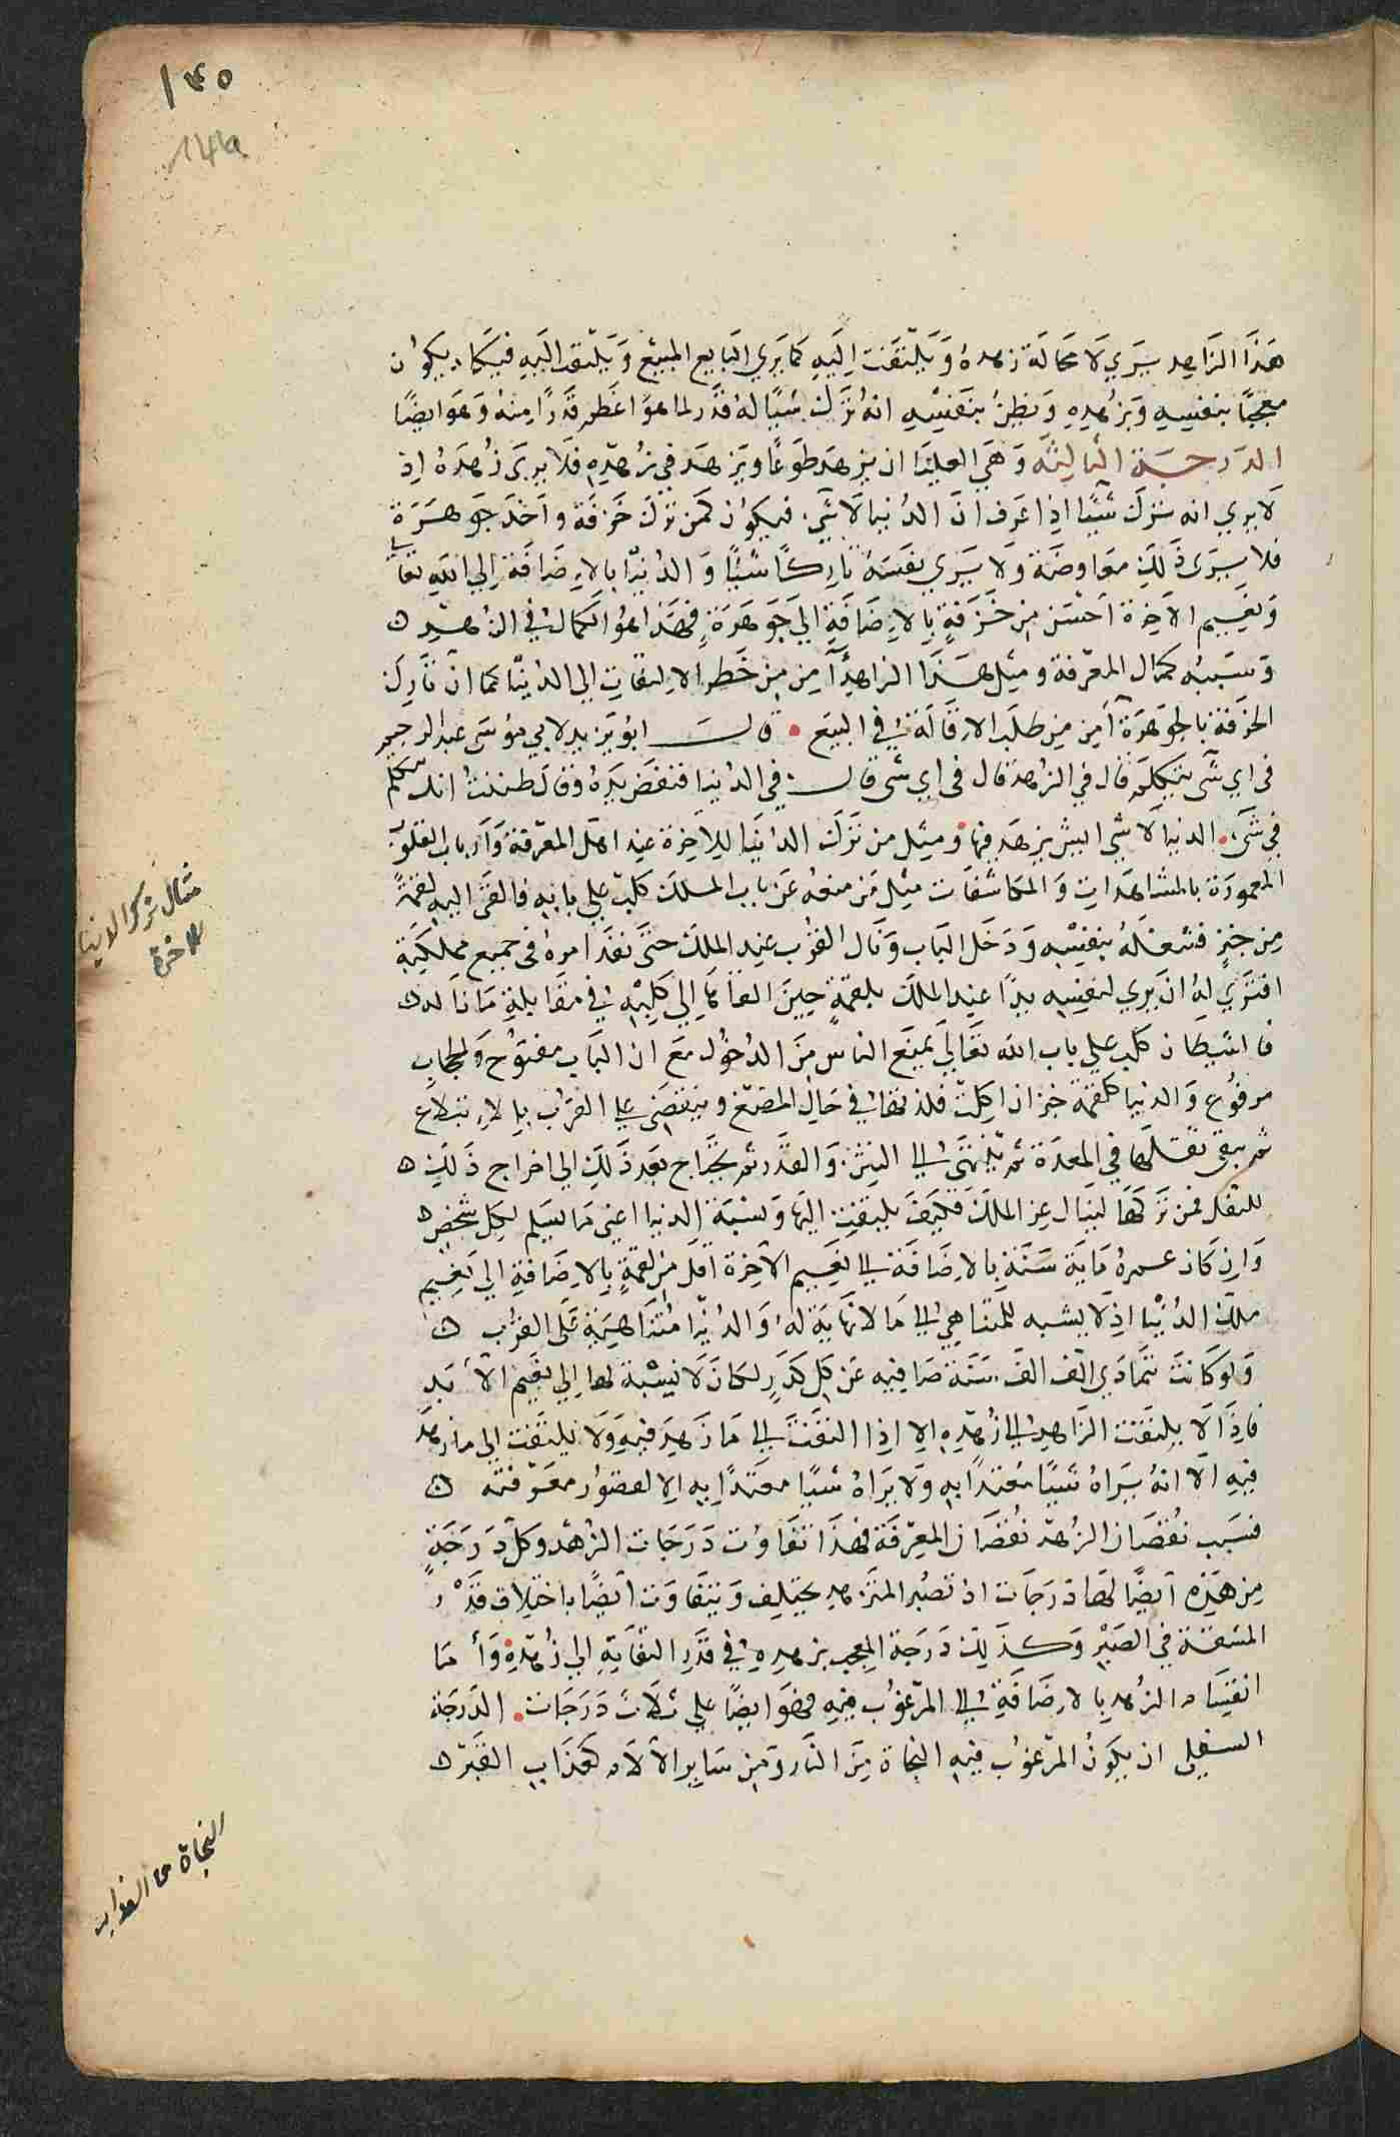 ١٤٥
146
هذا الزاهد يري لا محالة زهده ويلتفت اليه كما يري البايع المبيع ويلتفت اليه فيكاد يكون
معجبًا بنفسه وبزهده ويظن بنفسه انه ترك شيًا له قدر لما هو اعظم قدرًا منه وهو ايضًا
الدرجة الثالثة وهي العليا ان يزهد طوعًا ويزهد في زهده فلا يري زهده اذ
لا يري انه ترك شيًا اذا عرف ان الدنيا لا شي فيكون كمن ترك خزفة واخذ جوهرة
فلا يري ذلك معاوضة ولا يري نفسه تاركًا شيًا والدنيا بالاضافة الي الله تعالي
ونعيم الاخرة احسن من خزفة بالاضافة الي جوهرة فهذا هو الكمال في الزهد
وسببه كمال المعرفة ومثل هذا الزاهد آمن من خطر الالتفات الي الدنيا كما ان تارك
الخزفة بالجوهرة آمن من طلب الاقالة في البيع قال ابو يزيد لابي موسي عبد الرحيم
في اي شي يتكلم قال في الزهد قال في اي شي قال في الدنيا فنفض يده وقال ظننت انك تتكلم
في شي الدنيا لا شي ايش يزهد فيها ومثل من ترك الدنيا للاخرة عند اهل المعرفة وارباب القلوب
المعمورة بالمشاهدات والمكاشفات مثل من منعه عن باب الملك كلب علي بابه فالقي اليه لقمة
من خبز فشغله بنفسه ودخل الباب ونال القرب عند الملك حتي نفذ امره في جميع مملكته
افتري له ان يري لنفسه يدًا عند الملك بلقمة حين القاها الي كلبه في مقابلة ما ناله
فالشيطان كلب علي باب الله تعالي يمنع الناس من الدخول مع ان الباب مفتوح والحجاب
مرفوع والدنيا كلقمة خبز ان اكلت فلذتها في حال المضغ وينقضي علي القرب بالابتلاع
ثم يبقي ثقلها في المعدة ثم ينتهي الي النتن والقذر ثم يحتاج بعد ذلك الي اخراج ذلك
للثقل فمن تركها لينال عز الملك فكيف يلتفت اليها ونسبة الدنيا اعني ما يسلم لكل شخص
وان كان عمره ماية سنة بالاضافة الي نعيم الآخرة اقل من لقمة بالاضافة الي نعيم
ملك الدنيا اذ لا يشبه للمتناهي الي ما لا نهاية له والدنيا متناهية علي القرب
ولو كانت تتمادي الف الف سنة صافيه عن كل كدر لكان لا نسبة لها الي نعيم الابد
فاذًا لا يلتفت الزاهد الي زهده الا اذا التفت الي ما زهد فيه ولا يلتفت الي ما زهد
فيه الا انه يراه شيًا معتدًا به ولا يراه شيًا معتدًا به الا لقصور معرفته
فسبب نقصان الزهد نقصان المعرفة فهذا تفاوت درجات الزهد وكل درجة
من هذه ايضًا لها درجات اذ تصبر المتزهد يختلف ويتفاوت ايضًا باختلاف قدر
المشقة في الصبر وكذلك درجة المعجب بزهده في قدر التفاته الي زهده واما
انقسام الزهد بالاضافة الي المرغوب فيه فهو ايضًا علي ثلاث درجات الدرجة
السفلي ان يكون المرغوب فيه النجاة من النار ومن ساير الآلام كعذاب القبر
مثال ترك الدنيا
للاخرة
النجاة من العذاب